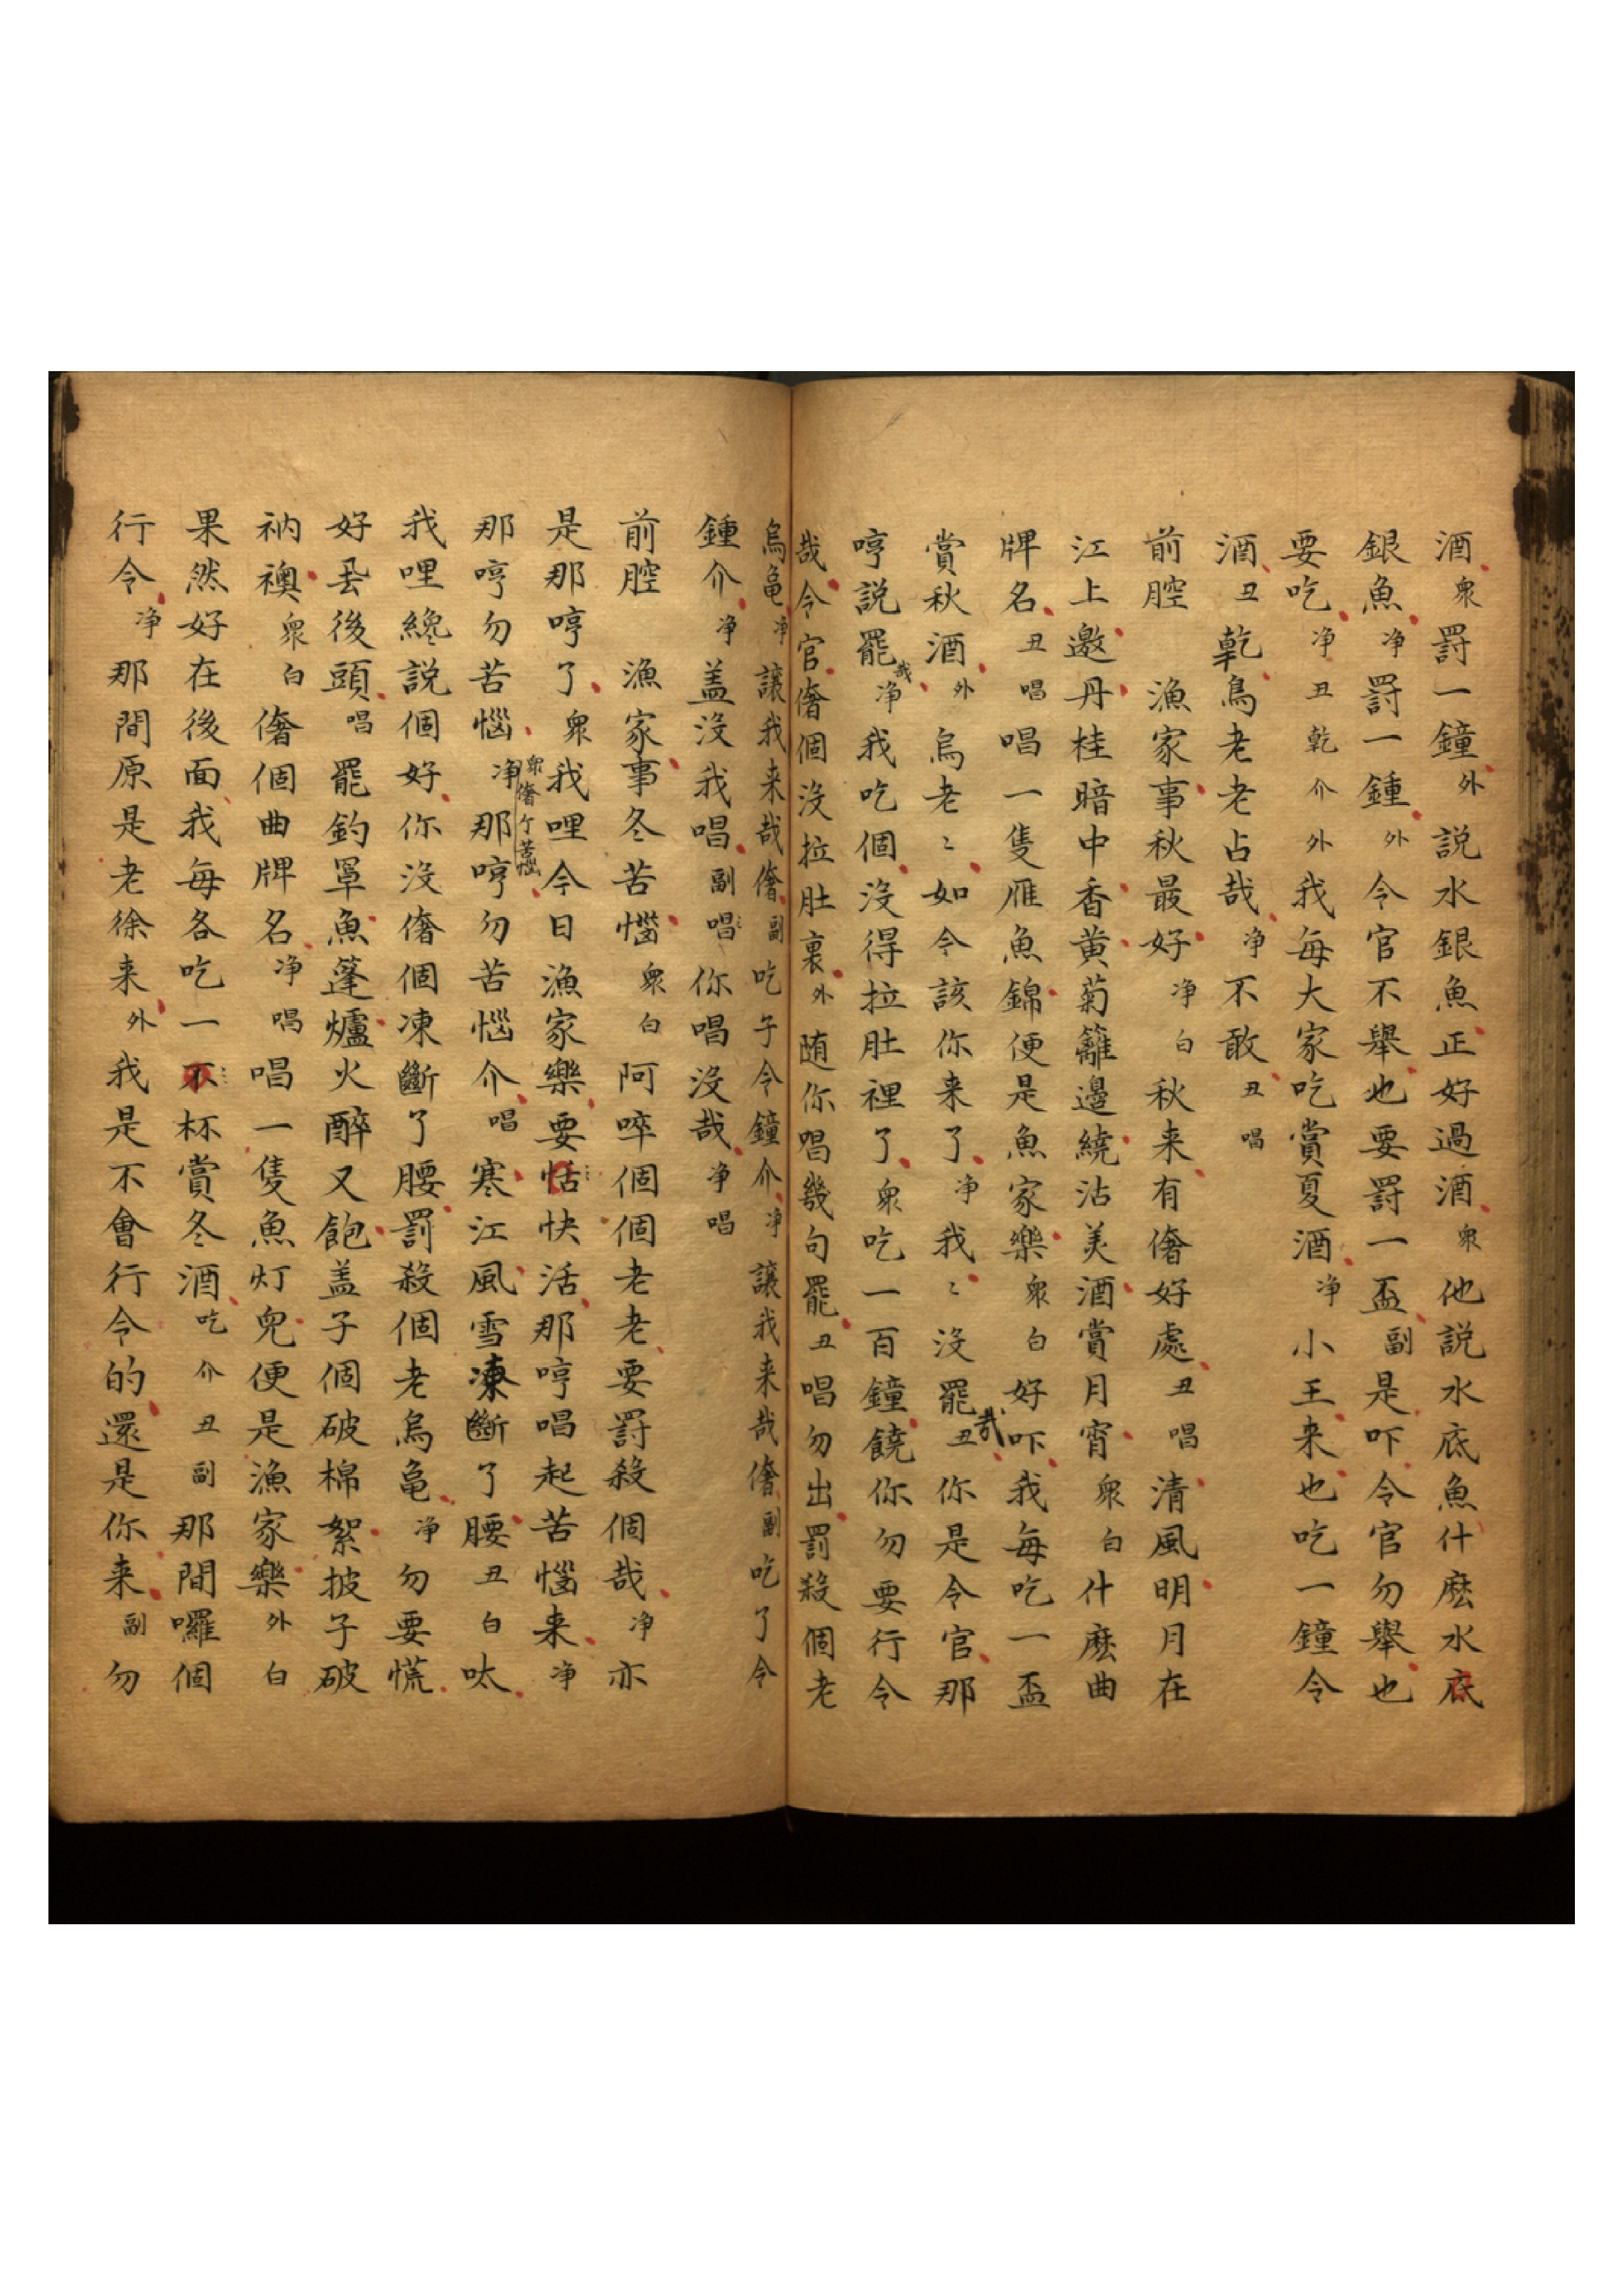 酒衆罰一鐘外說水銀魚正好過酒衆他說水底魚什麽水底
銀魚净罰一鍾外令官不舉也要罰一盃副是吓令官勿舉也
要吃净丑乾介外我每大家吃賞夏酒净小王来也吃一鐘令
酒丑乾鳥老老占哉净不敢丑唱
前腔　漁家事秋最好净白秋来有僭好處丑唱清風明月在
江上邀丹桂暗中香黄菊籬邊繞沽美酒賞月宵衆白什麽曲
牌名丑唱唱一隻雁魚錦便是魚家樂衆白好吓我每吃一盃
賞秋酒外烏老〻如今該你来了净我〻沒罷哉丑你是令官那
哼説罷哉净我吃個沒得拉肚裡了衆吃一百鐘饒你勿要行令
哉令官僭個沒拉肚裏外随你唱幾句罷丑唱勿出罰殺個老
烏龟净讓我来哉僭副吃子令鐘介净讓我来哉僭副吃了令
鍾介净盖沒我唱副唱你唱沒哉净唱
前腔　漁家事冬苦惱衆白阿啐個個老老要罰殺個哉净亦
是那哼了衆我哩今日漁家樂要恬快活那哼唱起苦惱来净
那哼勿苦惱衆僭个苦惱净那哼勿苦惱介唱寒江風雪凍斷了腰丑白呔
我哩纔説個好你沒僭個凍斷了腰罰殺個老烏龟净勿要慌
好丢後頭唱罷釣罩魚蓬爐火醉又飽盖子個破棉絮披子破
衲襖衆白僭個曲牌名净唱唱一隻魚灯兒便是漁家樂外白
果然好在後面我每各吃一不杯賞冬酒吃介丑副那間囉個
行令净那間原是老徐来外我是不會行令的還是你来副勿